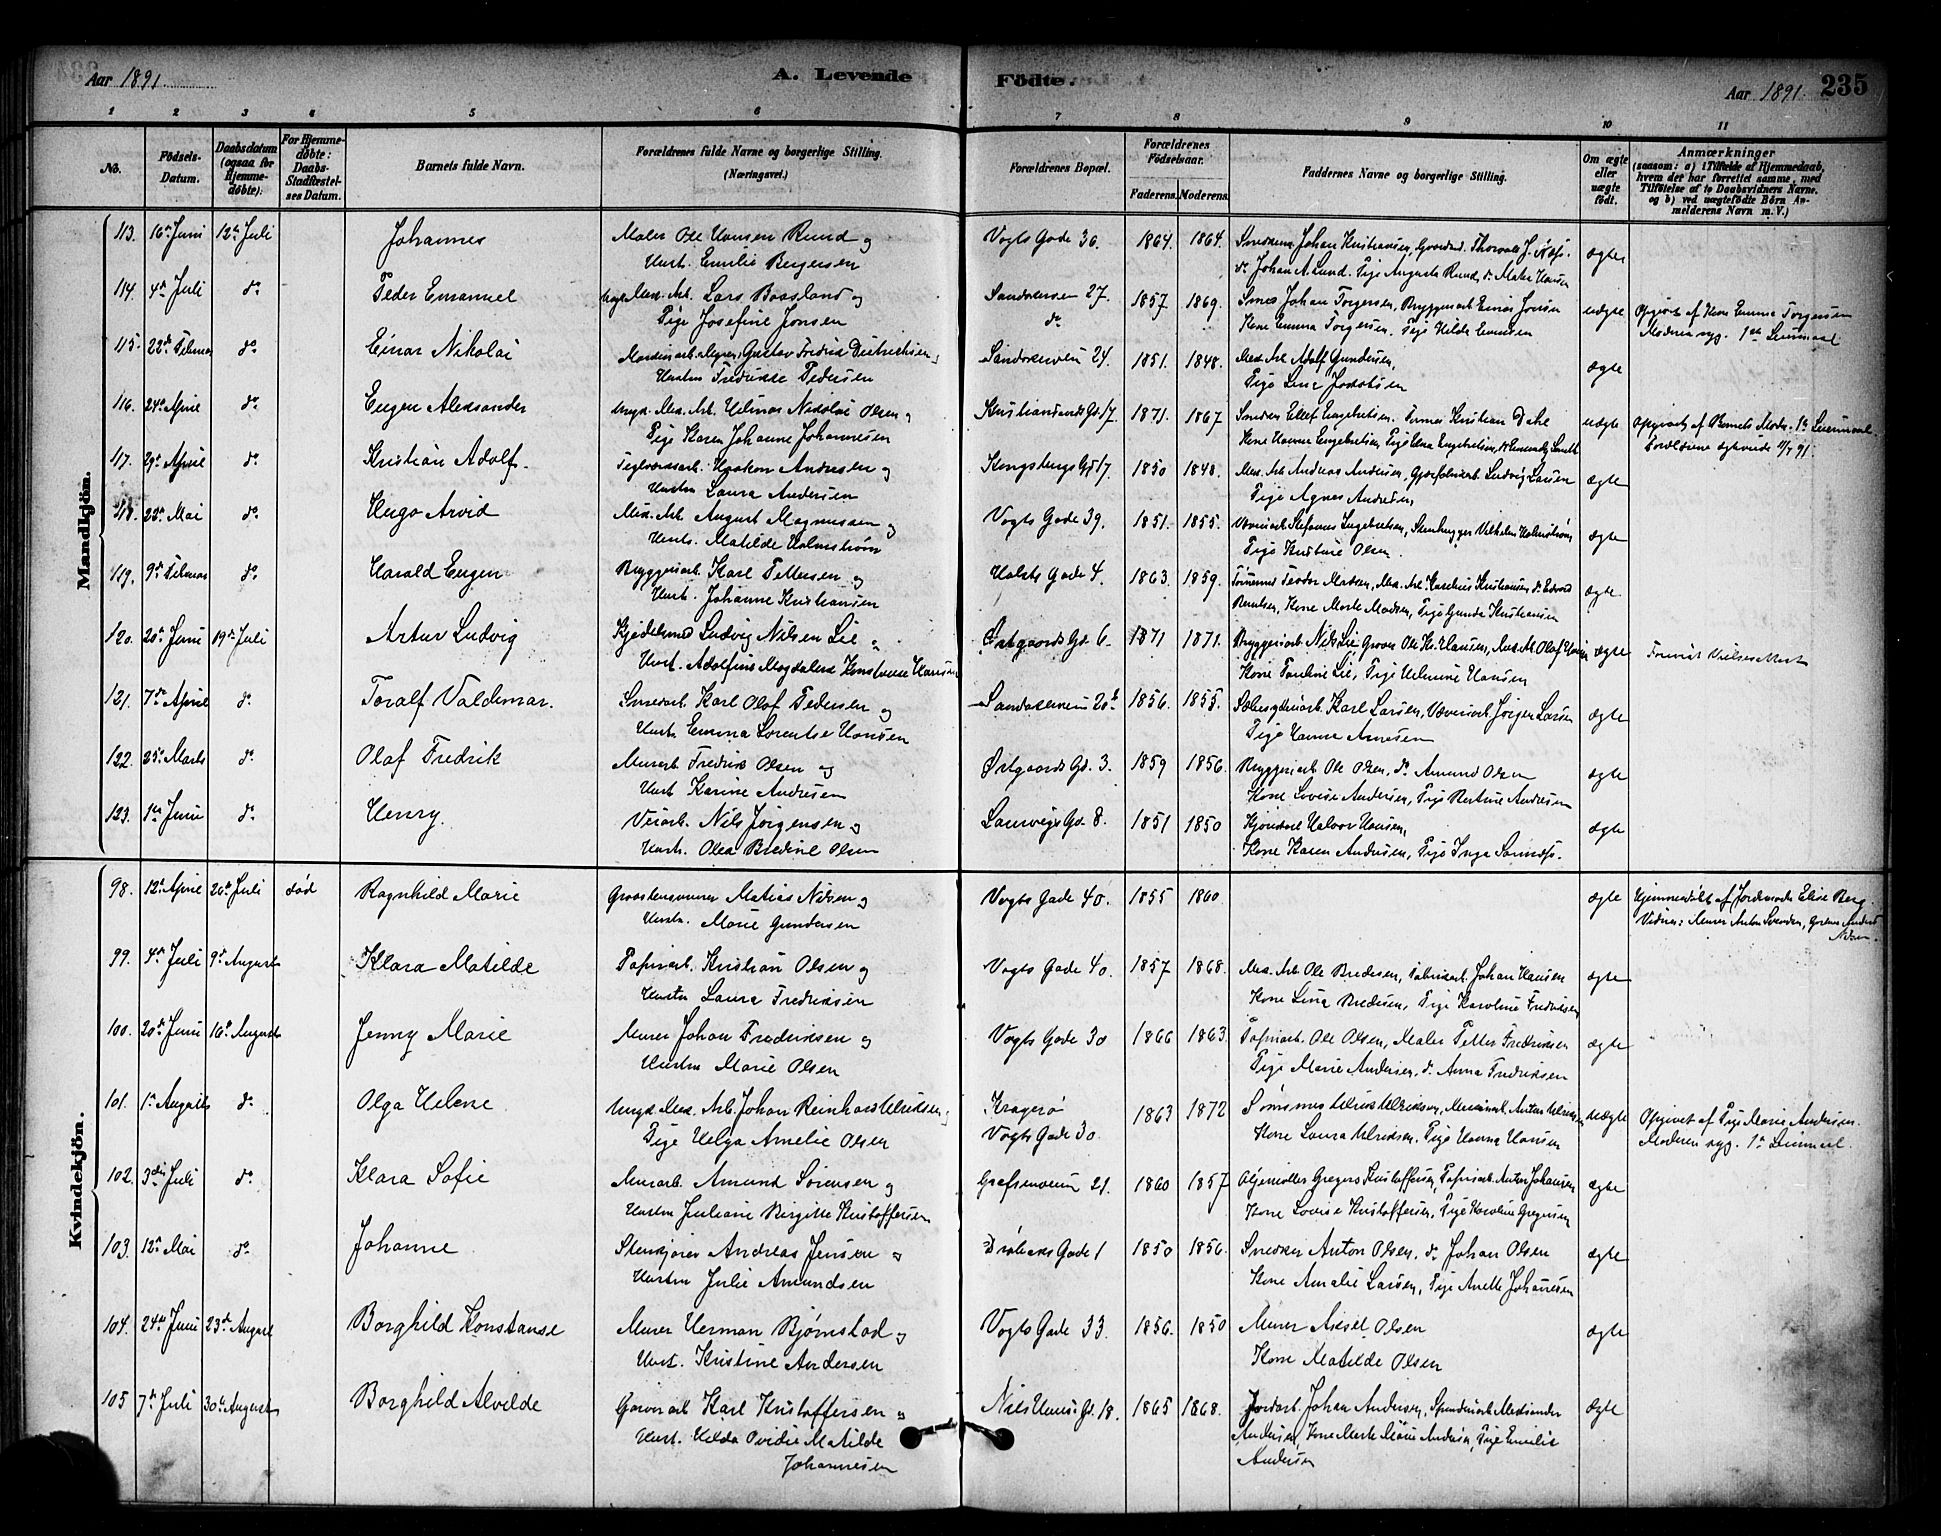 Aar 1891
A. Levende
Födte.
Aar 1891.
235
1 2 3 4 5 6 7 8 9 10 11
No.
Födsels-
Datum.
Daabsdatum
(ogsaa for
Hjemme-
døbte).
For Hjemme-
døbte:
Daabs-
Stadfæstel-
ses Datum.
Barnets fulde Navn.
Forældrenes fulde Navne og borgerlige Stilling.
(Næringsvei.)
Forældrenes Bopæl.
Forældrenes
Födselsaar.
Faderens. Moderens.
Faddernes Navne og borgerlige Stilling.
Om ægte
eller
uægte
født.
Anmærkninger
(saasom: a) i Tilfælde af Hjemmedaab,
hvem der har forrettet samme, med
Tilføielse af to Daabsvidners Navne.
og b) ved uægtefödte Börn An-
melderens Navn m. V.)
Mandkjön.
113. 16de Juni 12te Juli Johannes Maler Ole Hansen Rund og Vogts Gade 30. 1864. 1864. Johan Kristiansen, Thorvald J. ægte
Hust. Emilie Bergersen do Johan A. Lund. Pige Augusta Rund, do Hansen
114. 4de Juli do Peder Emanuel Lars Baasland og Sandakerveien 27. 1857 1869. Smed Johan Torgersen, Bryggeriarb. Einar Jonsen uægte Opgivet af Kone Emma Torgersen
Pige Josefine Jonsen do Kone Emma Torgersen. Pige Hilda Moderen syg. 1ste Leiermaal
115. 22de Februar do Einar Nikolai Gustav Fredrik Diedrichsen Sandakerveien 24. 1851. 1848. Mek. Arb. Adolf Gundersen, ægte
Hustru Fredrikke Pedersen Pige Jacobsen
116. 24de April do Eugen Aleksander Ungk. Mek. Arb. Hilmar Nikolai Olsen og Kristiansands Gd. 17. 1871. 1867 Snedker Ellef Engebretsen. Kristian Dahl uægte Opgivet af Barnets Moder. 1ste Leiermaal.
Pige Karen Johanne Johannesen Kone Hanna Engebretsen, Pige Engebretsen, Forældrene ægteviede 91.
117. 29de April do Kristian Adolf. Teglverksarb. Haakon Andresen og Kongsbergs Gd. 17 1850 1848. Mek. Arb. Andreas Andersen, Ludvig Larsen ægte
Hustru Laura Andersen Pige Agnes Andresen,
118. 22de Mai do Hugo Arvid Mek. Arb. August Magnussen og Vogts Gade 39. 1851. 1855. Væveriarb. Stefanus Ingebretsen, Stenhugger Vilhelm Holmstrøm ægte
Hust. Matilde Holmstrøm Pige Kristine Olsen.
119. 9de Februar do Harald Eugen Bryggeriarb. Karl Pettersen og Holsts Gade 4. 1863. 1859. Teodor Madsen, Mek. Arb. Kristiansen do Edvard ægte.
Hust. Johanne Kristiansen Berntsen, Kone Marte Madsen, Pige Gunda Kristiansen
120. 20de Juni 19de Juli Artur Ludvig Kjedelsmed Ludvig Nilsen Lie og Østgaards Gd. 6. 1871 1871. Bryggeriarb. Nils Lie, Ole Kr. Hansen, Mek. A. Olaf Hansen ægte
Hust. Adolfine Magdalena Konstanse Hansen Kone Pauline Lie, Pige Helmine Hansen
121. 7de April do Toralf Valdemar. Smedarb. Karl Olaf Pedersen og Sandakerveien 20b 1856. 1855. Karl Larsen, Væveriarb. Jørgen Larsen ægte
Hust. Emma Lorentse Hansen Pige Hanna Arnesen
122. 25de Marts do Olaf Fredrik Murarb. Fredrik Olsen og Østgaards Gd. 3. 1859 1856. Bryggeriarb. Ole Olsen, do Amund Olsen ægte
Hust. Karine Andresen Kone Lovise Andersen, Pige Bertine Andresen
123. 1ste Juni do Henry. Veiarb. Nils Jørgensen og Laurvigs Gd. 8. 1851 1850 Halvor Hansen, ægte
Hust. Olea Bredine Olsen Kone Karen Andersen, Pige Inga
Kvindekjön.
98. 12te April 26de Juli død Ragnhild Marie Matias Nilsen og Vogts Gade 40. 1855 1860. ægte Hjemmedøbt af Jordemoder Elise Berg
Hustr. Marie Gundersen Vidner: Murer Anton Svendsen, Nilsen.
99. 4de Juli 9de August Klara Matilde Papirarb. Kristian Olsen og Vogts Gade 40. 1857 1868. Mek. Arb. Ole Bredesen, Fabrikarb. Johan Hansen ægte
Hustru Laura Fredriksen Kone Lina Bredesen, Pige Karoline Fredriksen
100. 20de Juni 16de August Jenny Marie Murer Johan Fredriksen og Vogts Gade 30 1866 1863. Papirarb. Ole Olsen, Maler Petter Fredriksen ægte
Hustru Marie Olsen Pige Marie Andersen, do Anna Fredriksen
101. 1ste August do Olga Helene Ungk. Mek. Arb. Johan Reinhardt Ulriksen, Kragerø 1863 1872 Sømand Ulrik Ulriksen, Anton Ulriksen uægte Opgivet af Pige Marie Andersen.
Pige Helga Amelie Olsen Vogts Gade 30. Kone Laura Ulriksen, Pige Hanna Hansen Moderen syg. 1ste Leiermaal.
102. 3die Juli do Klara Sofie Murarb. Amund Sørensen og Grefsenveien 21. 1860 1857 Oljemøller Gregers Kristoffersen, Papirarb. Anton Johansen ægte
Hustru Juliane Birgitte Kristoffersen Kone Lovise Kristoffersen, Pige Karoline Gregersen
103. 12te Mai do Johanne Stenkjører Andreas Jensen og Drøbaks Gade 1 1850 1856. Snedker Anton Olsen, do Johan Olsen ægte
Hustru Julie Amundsen Kone Amalie Larsen, Pige Anette Johannesen
104. 24de Juni 23de August Borghild Konstanse Murer Herman Bjørnstad og Vogts Gade 33. 1856. 1850 Murer Aksel Olsen ægte
Hust. Kristine Andersen Kone Matilde Olsen
105 7de Juli 30te August Borghild Alvilde Garveriarb Karl Kristoffersen og Nils Huus' Gd. 18. 1865 1868. Jordarb. Johan Andersen, Spinderiarb. Aleksander ægte
Hust. Hilda Ovidie Matilde Andersen, Kone Marte Marie Andersen, Pige Emilie
Johannesen Andersen